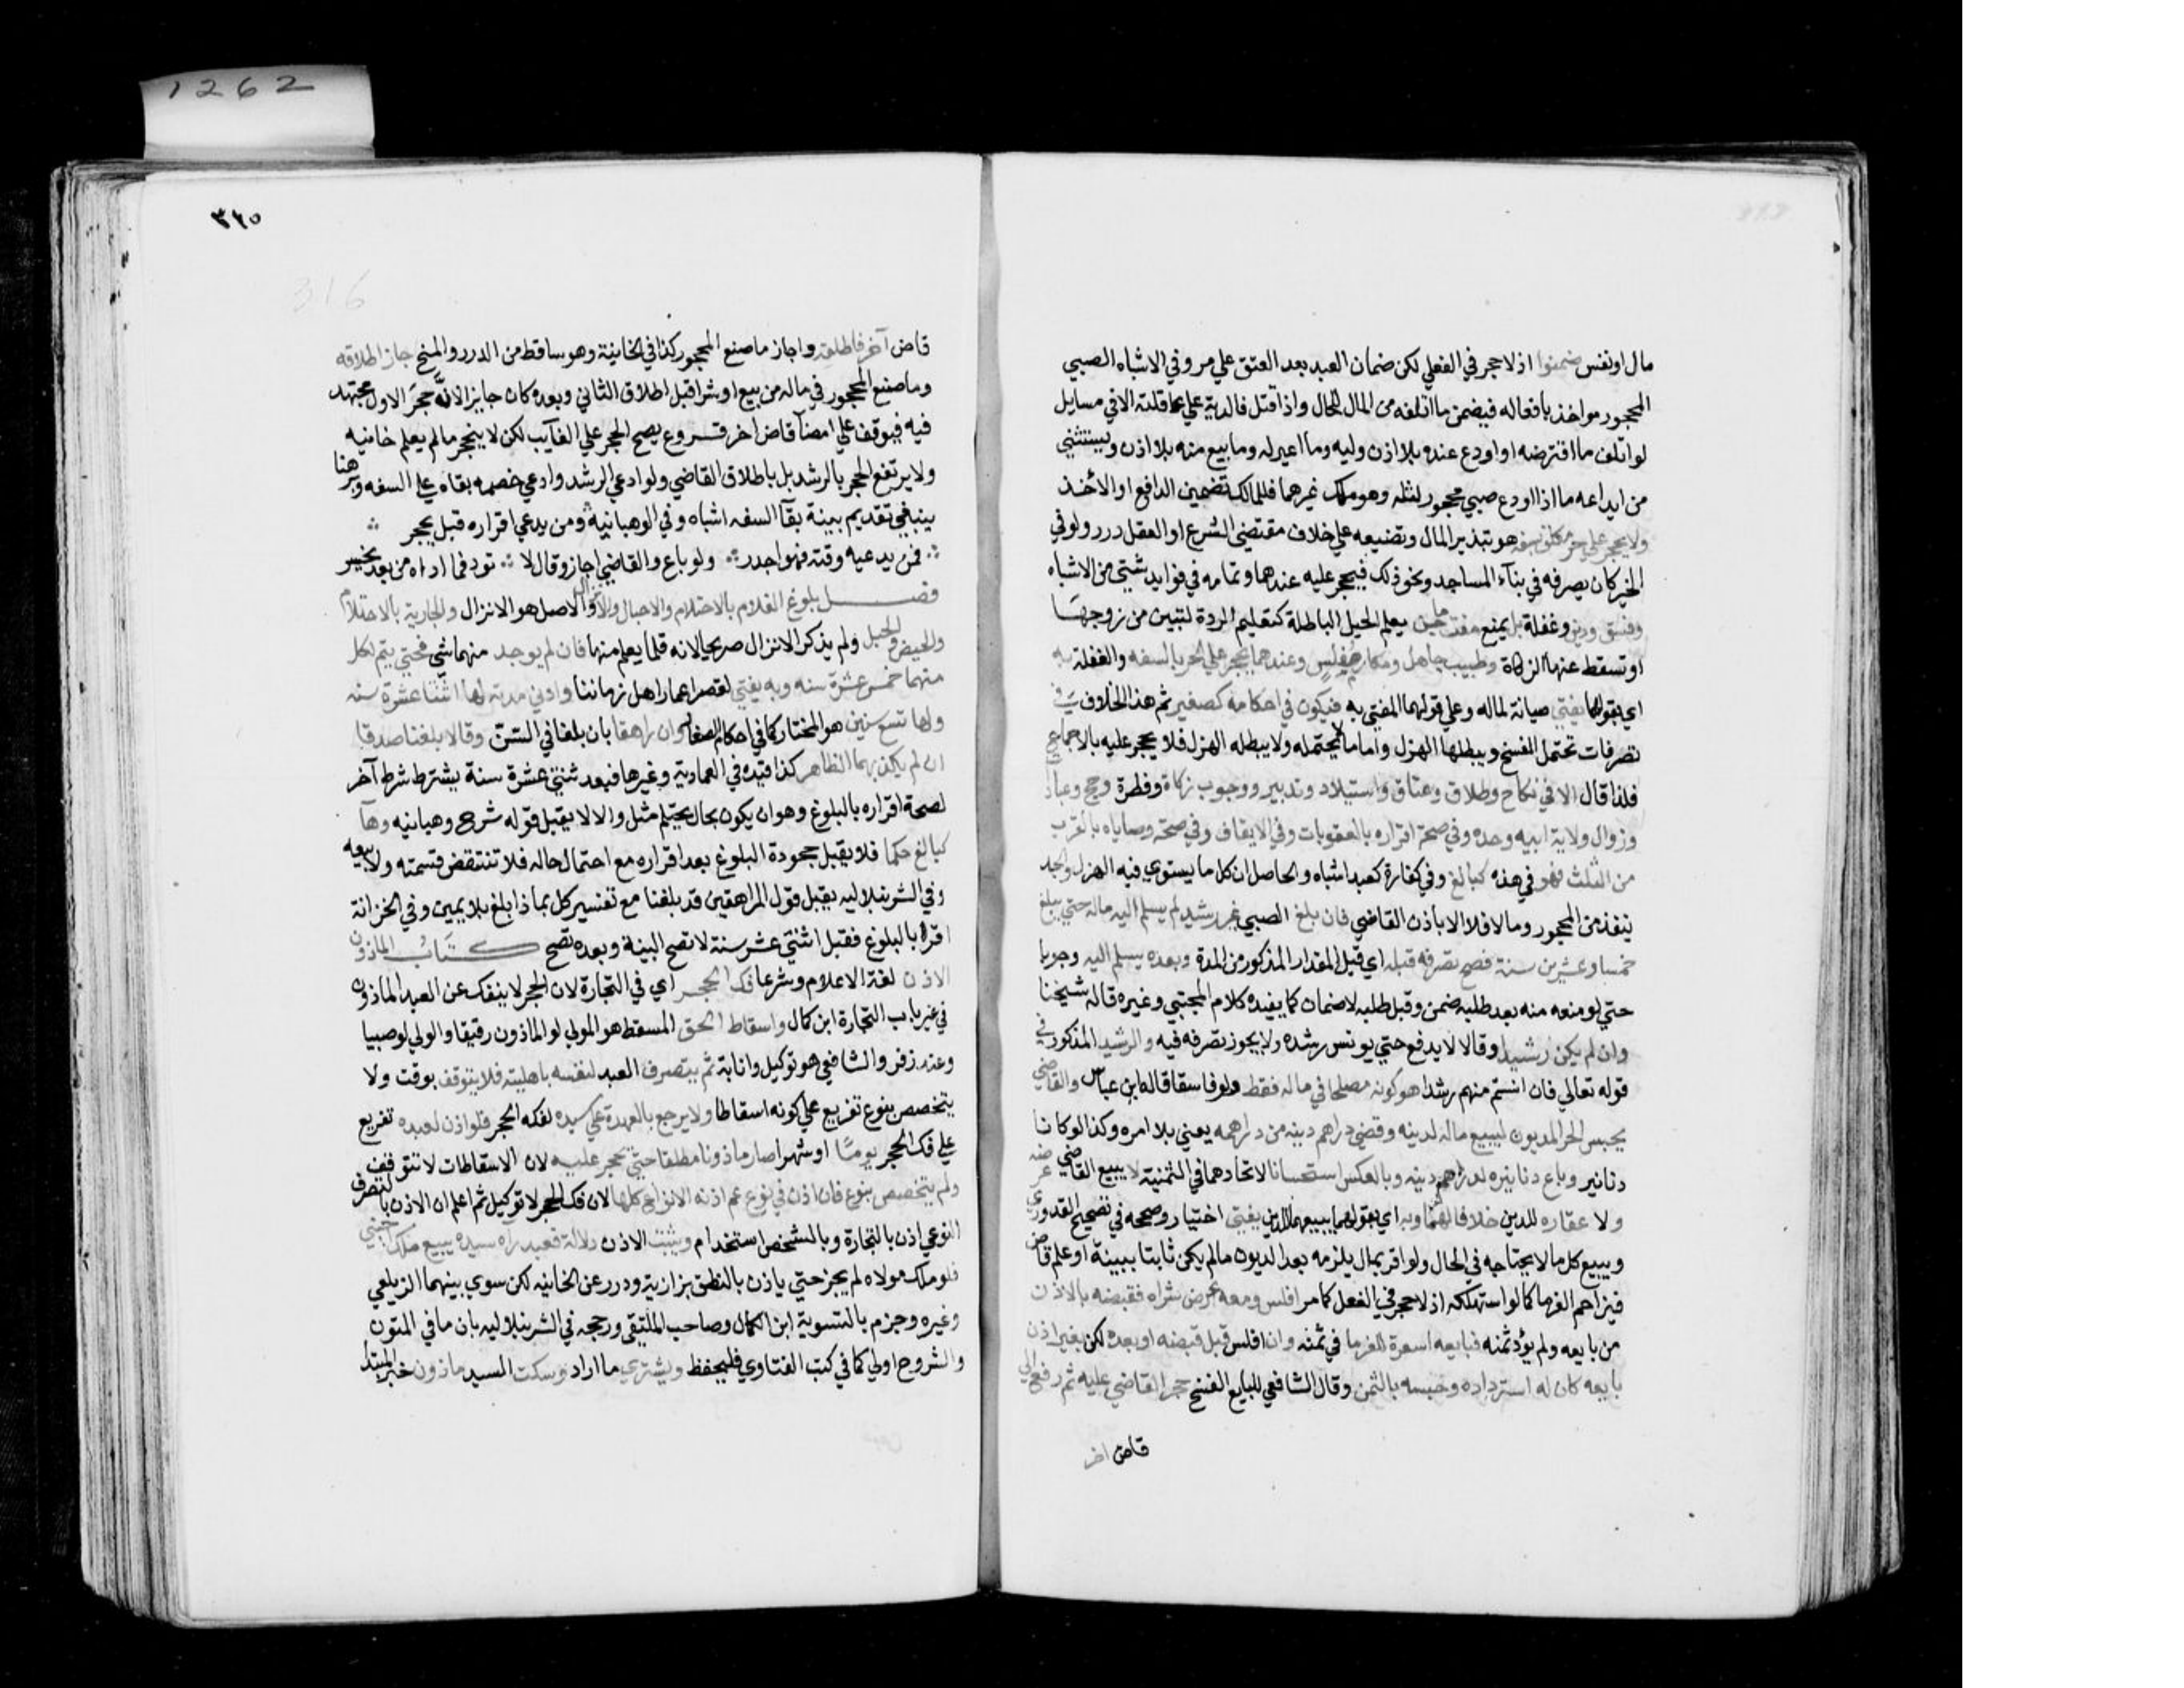 مال او نفس ضمنوا اذ لا حجر في الفعلي لكن ضمان العبد بعد العتق علي مر وفي الاشباه الصبي
المحجور مواخذ بافعاله فيضمن ما اتلفه من المال للحال واذا قتل فالدية علي عاقلته الا في مسايل
لو اتلف ما اقترضه او اودع عنده بلا اذن وليه وما اعير له وما بيع منه بلا اذن ويستثني
من ايداعه ما اذا اودع صبي محجور لمثله وهو ملك غيرهما فللمالك تضمين الدافع او الاخذ
ولا يحجر علي حر مكلف بسفه هو تبذير المال وتضييعه علي خلاف مقتضي الشرع او العقل درر ولو في
الخير كان يصرفه في بناء المساجد ونحو ذلك فيحجر عليه عندهما وتمامه في فوايد شتي من الاشباه
وفسق ودين وغفلة بل يمنع مفت ماجن يعلم الحيل الباطلة كتعليم الردة لتبين من زوجها
او تسقط عنها الزكاة وطبيب جاهل ومكار مفلس وعندهما يحجر علي الحر بالسفه والغفلة به
اي بقولهما يفتي صيانة لماله وعلي قولهما المفتي به فيكون في احكامه كصغير ثم هذا الخلاف في
تصرفات تحتمل الفسخ ويبطلها الهزل واما ما لا يحتمله ولا يبطله الهزل فلا يحجر عليه بالاجماع
فلذا قال الا في نكاح وطلاق وعتاق واستيلاد وتدبير ووجوب زكاة وفطرة وحج وعبادات
وزوال ولاية ابيه وجده وفي صحة اقراره بالعقوبات وفي الانفاق وفي صحة وصاياه بالقرب
من الثلث فهو في هذه كبالغ وفي كفارة كعبد اشباه والحاصل ان كل ما يستوي فيه الهزل والجد
ينفذ من المحجور وما لا فلا الا باذن القاضي فان بلغ الصبي غير رشيد لم يسلم اليه ماله حتي يبلغ
خمسا وعشرين سنة فصح تصرفه قبله اي قبل المقدار المذكور من المدة وبعده يسلم اليه وجوبا
حتي لو منعه منه بعد طلبه ضمن وقبل طلبه لا ضمان كما يفيده كلام المجتبي وغيره قاله شيخنا
وان لم يكن رشيدا وقالا لا يدفع حتي يونس رشده ولا يجوز تصرفه فيه والرشيد المذكور في
قوله تعالي فان انستم منهم رشدا هو كونه مصلحا في ماله فقط ولو فاسقا قاله ابن عباس والقاضي
يحبس الحر المديون ليبيع ماله لدينه وقضي دراهم دينه من دراهمه يعني بلا امره وكذا لو كانا
دنانير وباع دنانيره لدراهم دينه وبالعكس استحسانا لاتحادهما في الثمنية لا يبيع القاضي عرضه
ولا عقاره للدين خلافا لهما وبه اي بقولهما يبيعهما للدين يفتي اختيار وصححه في تصحيح القدوري
ويبيع كل ما لا يحتاجه في الحال ولو اقر بمال يلزمه بعد الديون ما لم يكن ثابتا ببينة او علم قاض
فيزاحم الغرما كما لو استهلكه اذ لا حجر في الفعل كما مر افلس ومعه عرض شراه فقبضه بالاذن
من بايعه ولم يؤد ثمنه فبايعه اسوة للغرما في ثمنه وان افلس قبل قبضه او بعده لكن بغير اذن
بايعه كان له استرداده وحبسه بالثمن وقال الشافعي للبايع الفسخ حجر القاضي عليه ثم رفع الي
قاض اخر
٣١٥
316
قاض آخر فاطلقه واجاز ما صنع المحجور كذا في الخانية وهو ساقط من الدرر والمنح جاز اطلاقه
وما صنع المحجور في ماله من بيع او شرا قبل اطلاق الثاني وبعده كان جايزا لانَّ حجَر الاول مجتهد
فيه فيوقف علي امضآ قاض اخر فروع يصح الحجر علي الغآيب لكن لا ينحجر ما لم يعلم خانيه
ولا يرتفع الحجر بالرشد بل باطلاق القاضي ولو ادعي الرشد وادعي خصمه بقاه علي السفه وبرهنا
ينبغي تقديم بينة بقآ السفه اشباه وفي الوهبانية ومن يدعي اقراره قبل يحجر
فمن يدعيه وقته فهو اجدر ولو باع والقاضي اجاز وقال لا تود فما اداه من بعد يخسر
فصل بلوغ الغلام بالاحتلام والاحبال والانزال والاصل هو الانزال والجارية بالاحتلام
والحيض والحبل ولم يذكر الانزال صريحا لانه قلما يعلم منها فان لم يوجد منهما شي فحتي يتم لكل
منهما خمس عشرة سنه وبه يفتي لقصر اعمار اهل زماننا وادني مدته لها اثنتا عشرة سنه
ولها تسع سنين هو المختار كما في احكام الصغار وان راهقا بان بلغا في السن وقالا بلغنا صدقا
ان لم يكذبهما الظاهر كذا قيده في العمادية وغيرها فبعد ثنتي عشرة سنة يشترط شرط آخر
لصحة اقراره بالبلوغ وهو ان يكون بحال يحتلم مثله والا لا يقبل قوله شرح وهبانيه وهآ
كبالغ حكما فلا يقبل جحوده البلوغ بعد اقراره مع احتمال حاله فلا تنتقض قسمته ولا بيعه
وفي الشرنبلاليه يقبل قول المراهقين قد بلغنا مع تفسير كل بماذا بلغ بلا يمين وفي الخزانة
اقر بالبلوغ فقبل اثنتي عشر سنة لا تصح البينة وبعده تصح كتاب الماذون
الاذن لغة الاعلام وشرعا فك الحجر اي في التجارة لان الحجر لا ينفك عن العبد الماذون
في غير باب التجارة ابن كمال واسقاط الحق المسقط هو المولي لو الماذون رقيقا والولي لو صبيا
وعند زفر والشافعي هو توكيل وانابة ثم يتصرف العبد لنفسه باهليته فلا يتوقف بوقت ولا
يتخصص بنوع تفريع علي كونه اسقاطا ولا يرجع بالعهدة علي سيده لفكه الحجر فلو اذن لعبده تفريع
علي فك الحجر يومًا او شهرا صار ماذونا مطلقا حتي يحجر عليه لان الاسقاطات لا تتوقف
ولم يتخصص بنوع فان اذن في نوع عم اذنه الانواع كلها لان فك الحجر لا توكيل ثم اعلم ان الاذن بالتصرف
النوعي اذن بالتجارة وبالشخص استخدام ويثبت الاذن دلالة فعبد راه سيده يبيع ملك اجنبي
فلو ملك مولاه لم يجز حتي ياذن بالنطق بزازية ودرر عن الخانيه لكن سوي بينهما الزيلعي
وغيره وجزم بالتسوية ابن الكمال وصاحب الملتقي ورجحه في الشرنبلاليه بان ما في المتون
والشروح اولي كما في كتب الفتاوي فليحفظ ويشتري ما اراد وسكت السيد ماذون خبر المبتدا
1262